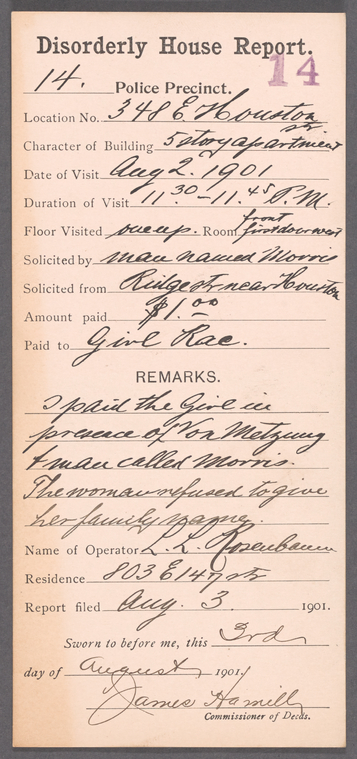 Disorderly House Report.
14
14. Police Precinct.
Location No. 348 E. Houston
str.
Character of Building 5 story apartment
Date of Visit Aug 2. 1901
Duration of Visit 11.30 - 11.45 P.M.
front
Floor Visited one up. Room first door west
Solicited by man named Morris
Solicited from Ridge str near Houston
Amount paid $1.00
Paid to Girl Rae.
REMARKS.
I paid the Girl in
presence of Von Metzung
+ man called Morris.
The woman refused to give
her family name.
Name of Operator L. L. Rosenbaum
Residence 803 E 147 str
Report filed Aug. 3 1901.
Sworn to before me, this 3rd
day of August 1901.
James Hamill
Commissioner of Deeds.